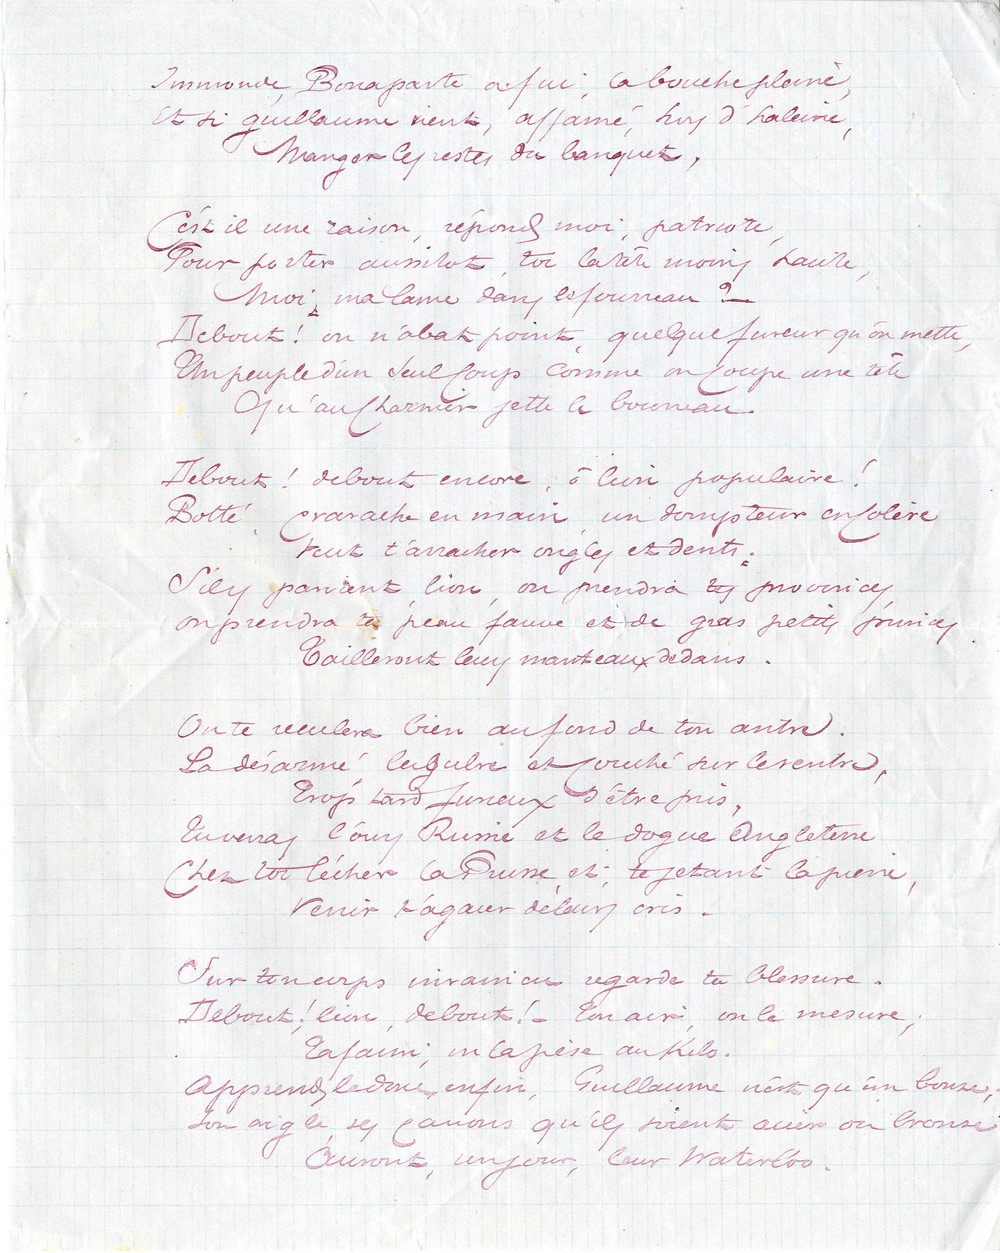 Immonde, Bonaparte a fui, la bouche pleine,
Et si guillaume vient, affamé, hors d'haleine,
Manger les restes du banquet,
C'est il une raison, réponds moi, patriote,
Pour porter aussitot, toi la tête moins haute,
Moi, ma lame dans le fourreau ? —
Debout ! on n'abat point, quelque fureur qu'on mette,
Un peuple d'un seul coup comme on coupe une tête
Qu'au charnier jette le bourreau.
Debout ! debout encore, ô lion populaire !
Botté, cravache en main, un dompteur en colère
Veut t'arracher ongles et dents.
S'il y parvient, lion, on prendra tes provinces
on prendra ta peau fauve et de gras petits princes
Tailleront leurs manteaux dedans.
On te reculera bien au fond de ton antre.
La désarmé, lugubre et couché sur le ventre,
Trop tard furieux d'être pris,
Tu verras l'ours Russie et le dogue Angleterre
Chez toi lécher la Prusse, et, te jetant la pierre,
Venir t'agacer de leurs cris.
Sur ton corps invaincu regarde ta blessure.
Debout ! lion, debout ! — Ton air, on le mesure,
Ta faim, on la pèse au kilo.
Apprends le donc, enfin, Guillaume n'est qu'un bonze,
Son aigle, ses canons qu'ils soient acier ou bronze
Auront, un jour, leur Waterloo.